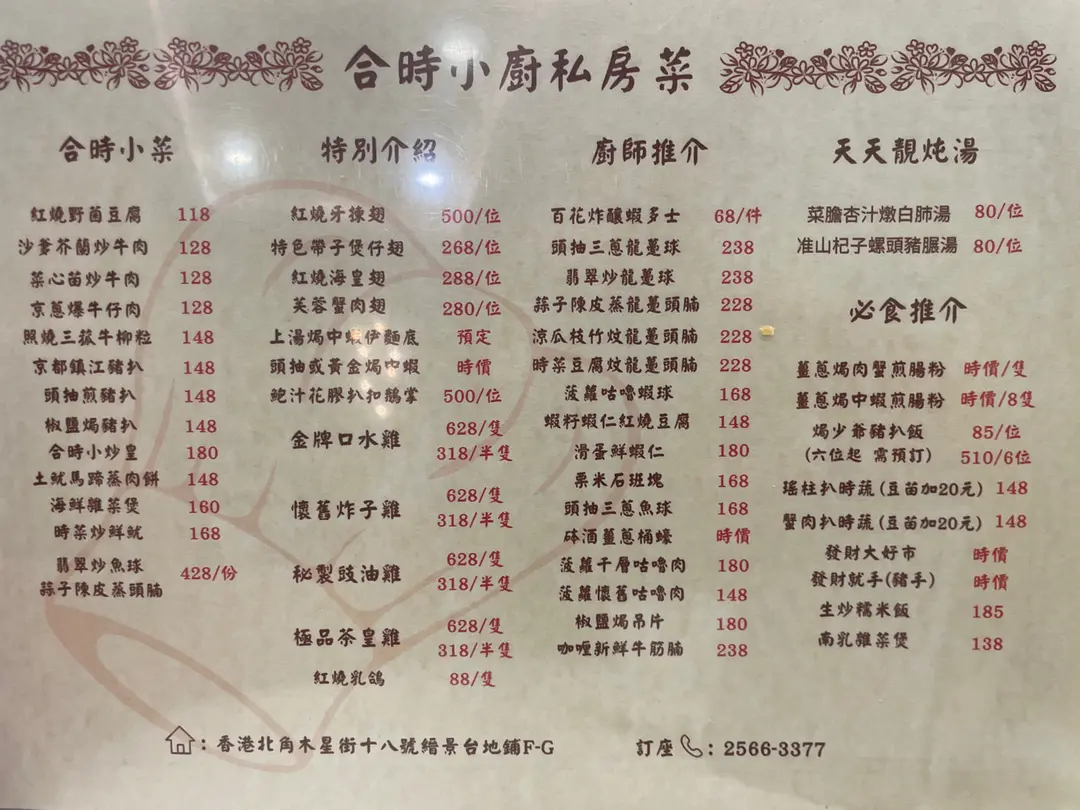 合時小廚私房菜
合時小菜
紅燒野菌豆腐 118
沙爹芥蘭炒牛肉 128
菜心苗炒牛肉 128
京蔥爆牛仔肉 128
照燒三菇牛柳粒 148
京都鎮江豬扒 148
頭抽煎豬扒 148
椒鹽焗豬扒 148
合時小炒皇 180
土魷馬蹄蒸肉餅 148
海鮮雜菜煲 160
時菜炒鮮魷 168
翡翠炒魚球
蒜子陳皮蒸頭腩 428/份
特別介紹
紅燒牙揀翅 500/位
特色帶子煲仔翅 268/位
紅燒海皇翅 288/位
芙蓉蟹肉翅 280/位
上湯焗中蝦伊麵底 預定
頭抽或黃金焗中蝦 時價
鮑汁花膠扒扣鵝掌 500/位
金牌口水雞 628/隻
318/半隻
懷舊炸子雞 628/隻
318/半隻
秘製豉油雞 628/隻
318/半隻
極品茶皇雞 628/隻
318/半隻
紅燒乳鴿 88/隻
廚師推介
百花炸釀蝦多士 68/件
頭抽三蔥龍躉球 238
翡翠炒龍躉球 238
蒜子陳皮蒸龍躉頭腩 228
涼瓜枝竹炆龍躉頭腩 228
時菜豆腐炆龍躉頭腩 228
菠蘿咕嚕蝦球 168
蝦籽蝦仁紅燒豆腐 148
滑蛋鮮蝦仁 180
粟米石班塊 168
頭抽三蔥魚球 168
砵酒薑蔥桶蠔 時價
菠蘿千層咕嚕肉 180
菠蘿懷舊咕嚕肉 148
椒鹽焗吊片 180
咖喱新鮮牛筋腩 238
天天靚炖湯
菜膽杏汁燉白肺湯 80/位
准山杞子螺頭豬𦟌湯 80/位
必食推介
薑蔥焗肉蟹煎腸粉 時價/隻
薑蔥焗中蝦煎腸粉 時價/8隻
焗少爺豬扒飯 85/位
(六位起 需預訂) 510/6位
瑤柱扒時蔬(豆苗加20元) 148
蟹肉扒時蔬(豆苗加20元) 148
發財大好市 時價
發財就手(豬手) 時價
生炒糯米飯 185
南乳雜菜煲 138
：香港北角木星街十八號縉景台地鋪F-G
訂座：2566-3377